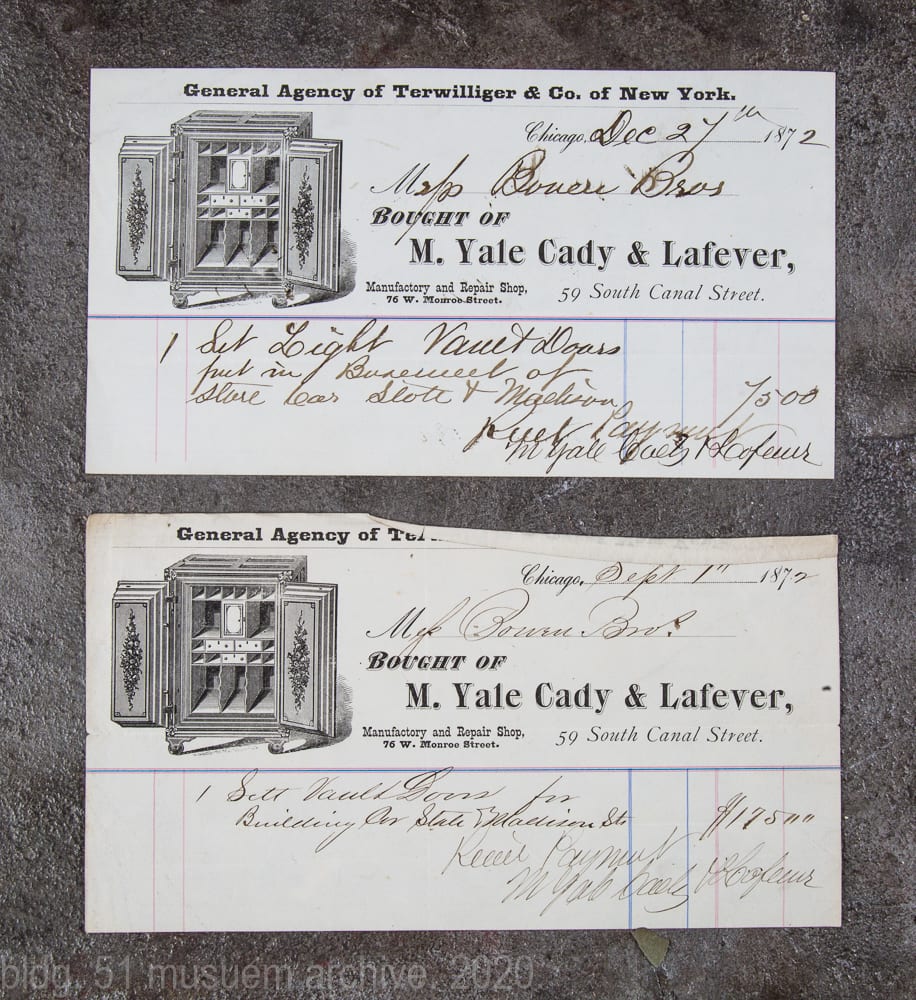 General Agency of Terwilliger & Co. of New York.
Chicago, Dec 27th 1872
Bowen Bros
BOUGHT OF
M. Yale Cady & Lafever,
Manufactory and Repair Shop,
76 W. Monroe Street.
59 South Canal Street.
1 Set Light Vault Doors
put in Basement of
Store Cor State & Madison 7500
Payment
M Yale Cady & Lafever
General Agency of
Chicago, Sept 1" 1872
Bowen Bros
BOUGHT OF
M. Yale Cady & Lafever,
Manufactory and Repair Shop,
76 W. Monroe Street.
59 South Canal Street.
1 Sett Vault Doors for
Building Cor State & Madison Sts $175""
Payment
M Yale Cady & Lafever
bldg. 51 musuem archive. 2020